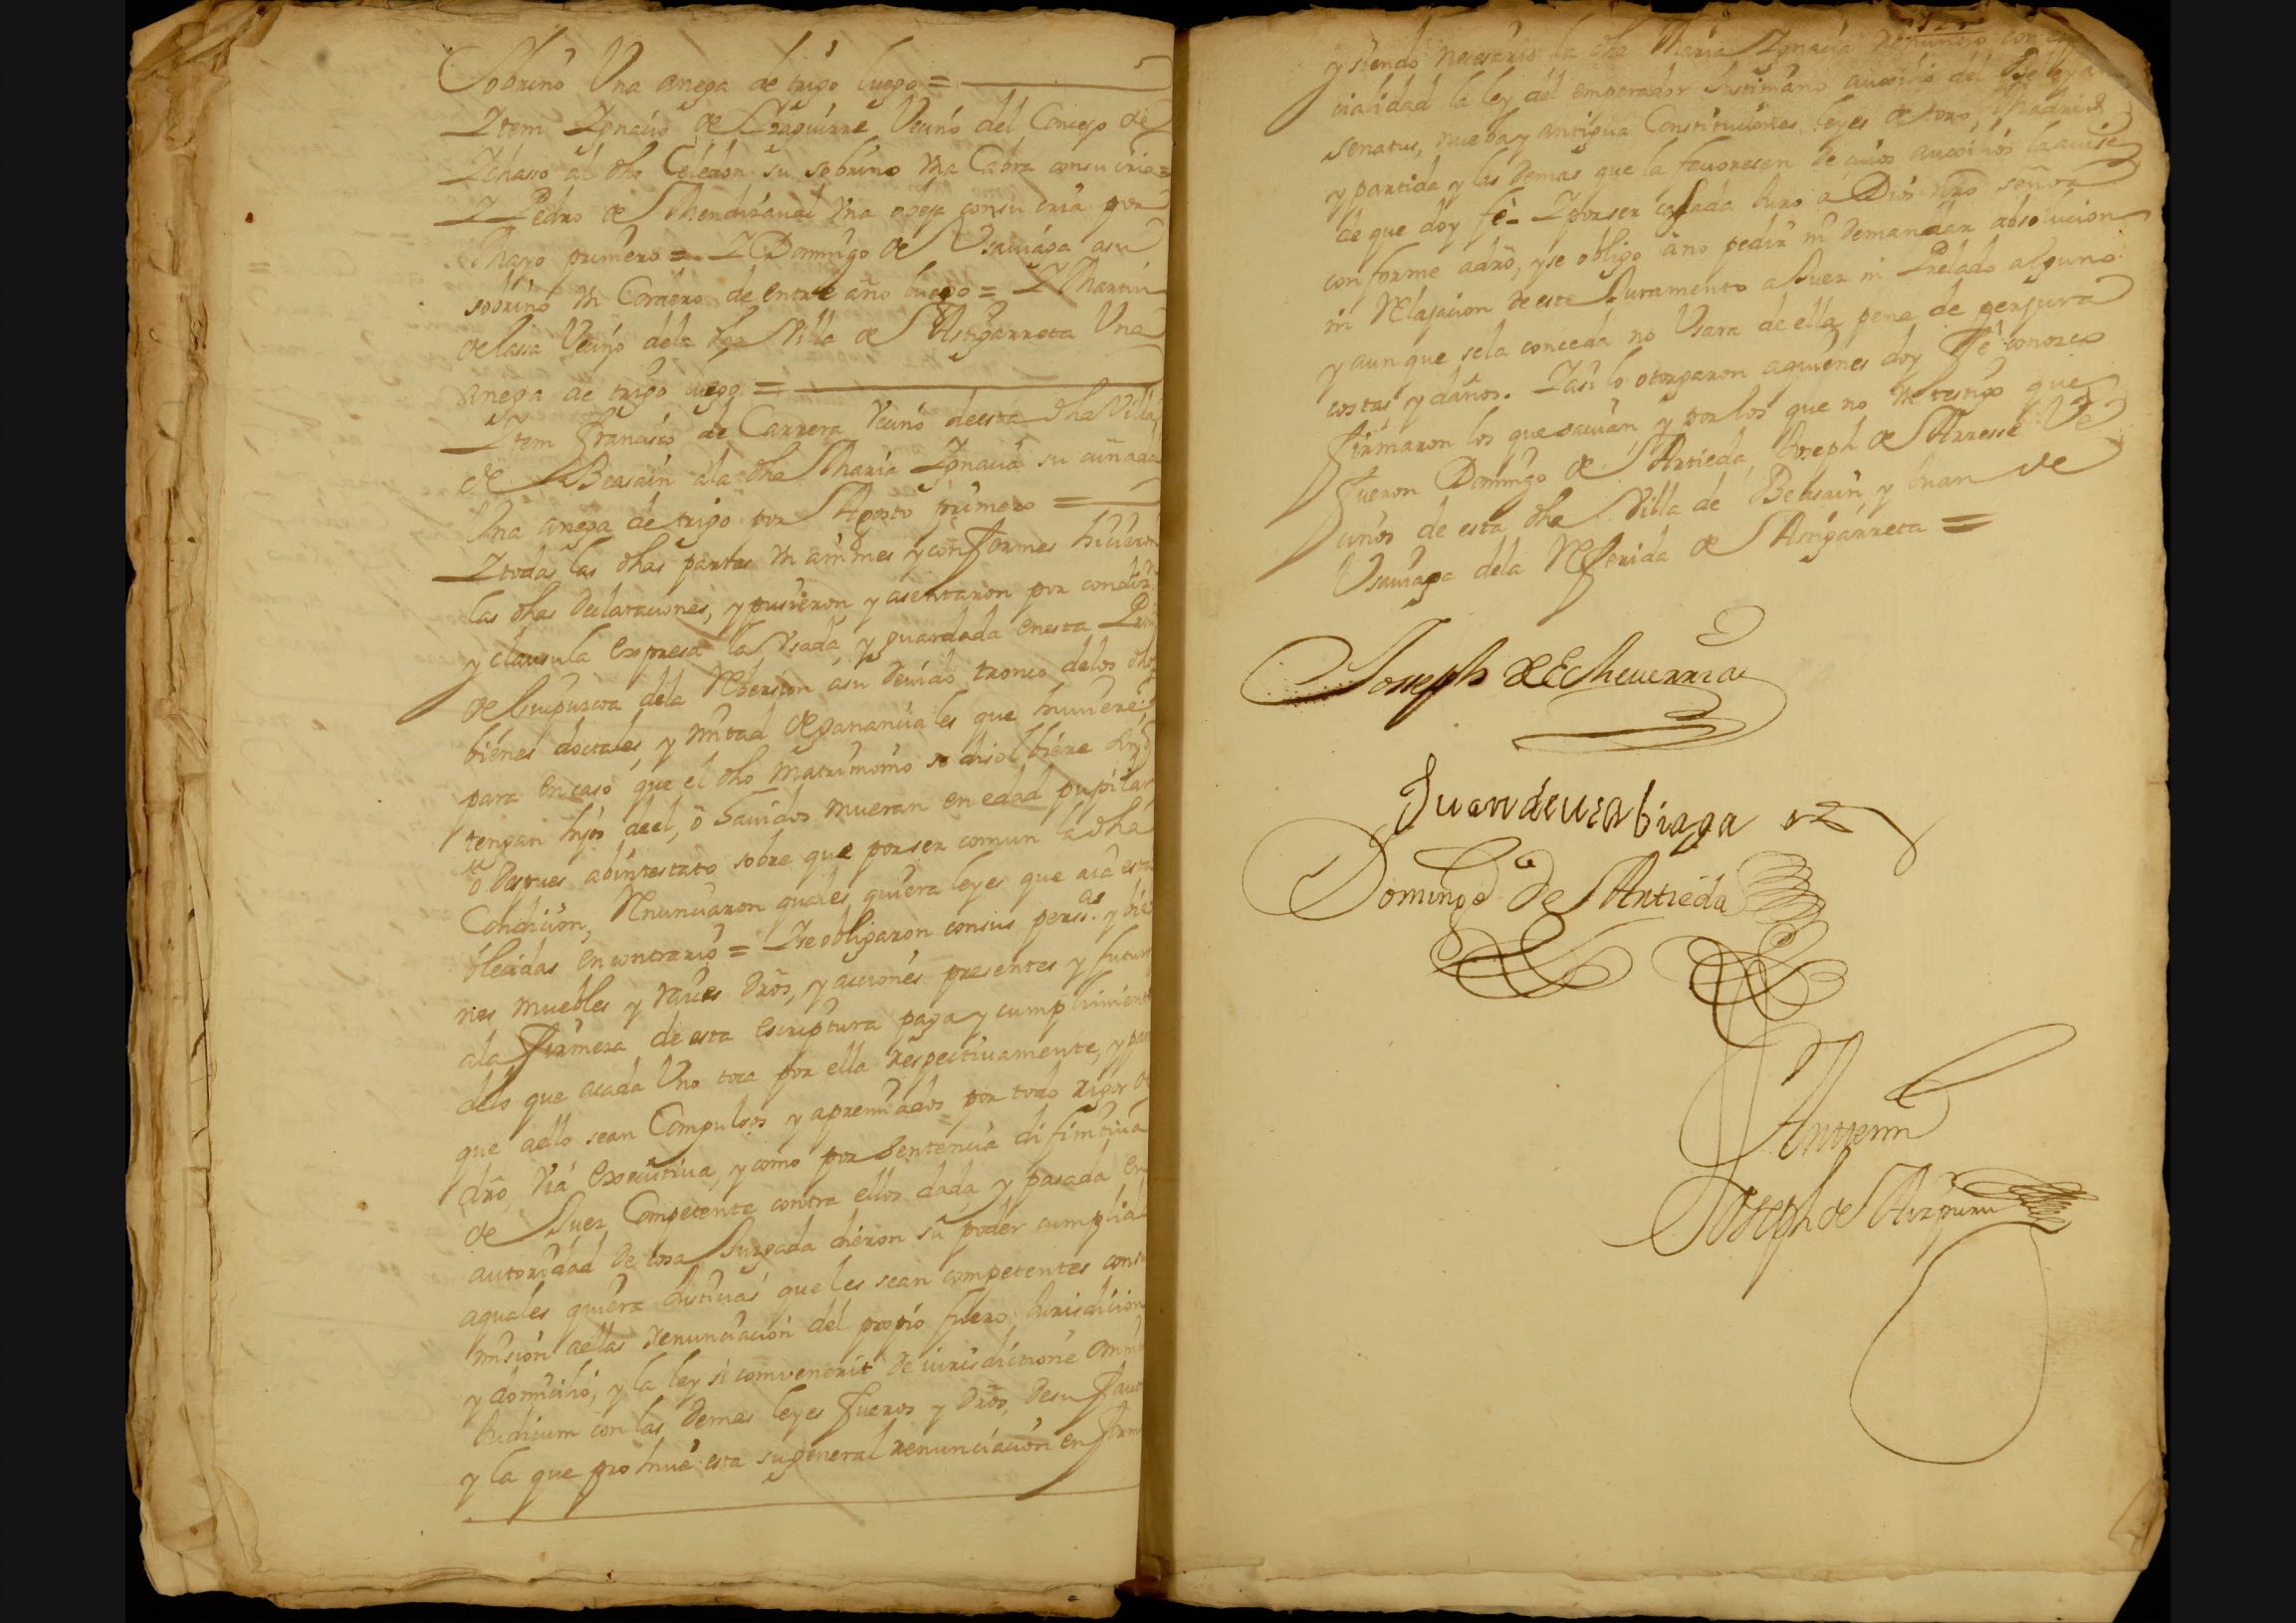 Sobrino Una anega de trigo luego =
Item Ignacio de Yraguirre Vecino del Concejo de
Ichasso al dho Celedon su sobrino Vna Cabra consu cria =
I Pedro de Mendizaual Vna obeja consu cria por
Mayo primero = I Domingo de Vsauiaga asu
sobrino Vn Cordero de entre año luego = I Martin
delassa Vecino dela dha Villa de Astigarreta Una
anega de trigo luego =
Item Francisco de Carrera Vecino deesta dha Villa
de Beasain ala dha Maria Ignacia su cuñada
Una anega de trigo por Agosto primero =
I todas las dhas partes Vnanimes y conformes hicieron
las dhas declaraciones, y pusieron y asentaron por condiz.n
y clausula expresa la Vsada, y guardada enesta
de Guipuzcoa dela Reberssion asu deuido tronco delos dhos
bienes dotales, y mitad de gananciales que huuiere
para encaso que el dho matrimonio se disolbiere sin q
tengan hijos deel, ò hauidos mueran en edad pupilar
ò despues abintestato sobre que porser comun la dha
Condicion, Renunciaron quales quiera leyes que aia esta
blecidas encontrario = I se obligaron consus persas. y bie
nes muebles y raices dros, y acciones presentes y futur
ala firmeza de esta escriptura paga y cumplimient
delo que acada Uno toca por ella respectiuamente, y para
que aello sean Compulsos y apremiados por todo rigor de
dro, Via executiua, y como por Sentencia difinitiua
de Juez Competente contra ellos dada y pasada en
autoridad de cosa Juzgada dieron su poder cumplido
aquales quiera Justicias que les sean competentes consu
mision aellas renunciacion del propio fuero, Jurisdicion
y domicilio, y la ley si comvenerit de iurisdictione omni
Judicum con las demas leyes fueros y dros, desu fauor
y la que prohiue esta su general renunciación en forma
y siendo necesario la dha Maria Ignacia renuncio con espe
cialidad la ley del emperador Justiniano auxilio del Beleyano
senatus, nueba y antigua Constituciones, leyes de toro, Madrid
y partida y las demas que la fauorescen de cuios auxilios la auise
de que doy fe - I porser casada Juro a Dios nro señor
conforme adro, y se obligo ano pedir ni demandar absolucion
ni Relajacion deeste Juramento a Juez ni Prelado alguno
y aun que sela conceda no Usara de ella pena de perjura
costas y daños. I asi lo otorgaron aquienes doy Fé conozco
firmaron los que sauian y por los que no Vn testigo que
fueron Domingo de Artieda, Joseph de Arresse Ve
cinos de esta dha Villa de Beasain, y Juan de
Vsauiaga dela Referida de Astigarreta =
Joseph de Echeuerria
Juan de usabiaga
Domingo de Artieda
Antemi
Joseph de Aizpuru